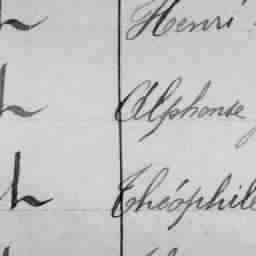 Henri
Alphonse
Théophile